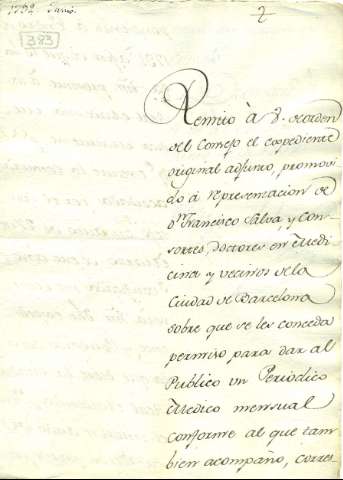 1792 Junio.
2
383
Remito à V. de orden
del Consejo el expediente
original adjunto, promovi
do à representacion de
Dn. Francisco Salva y Con-
sortes, doctores en Medi
cina y vecinos de la
Ciudad de Barcelona
sobre que se les conceda
permiso para dar al
Publico un Periodico
Medico mensual
conforme al que tam
bien acompaño, corres